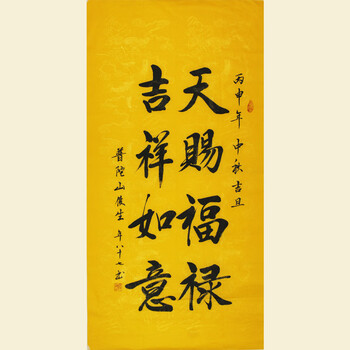 丙申年 中秋吉旦
天赐福禄
吉祥如意
普陀山俊生 年八十七书